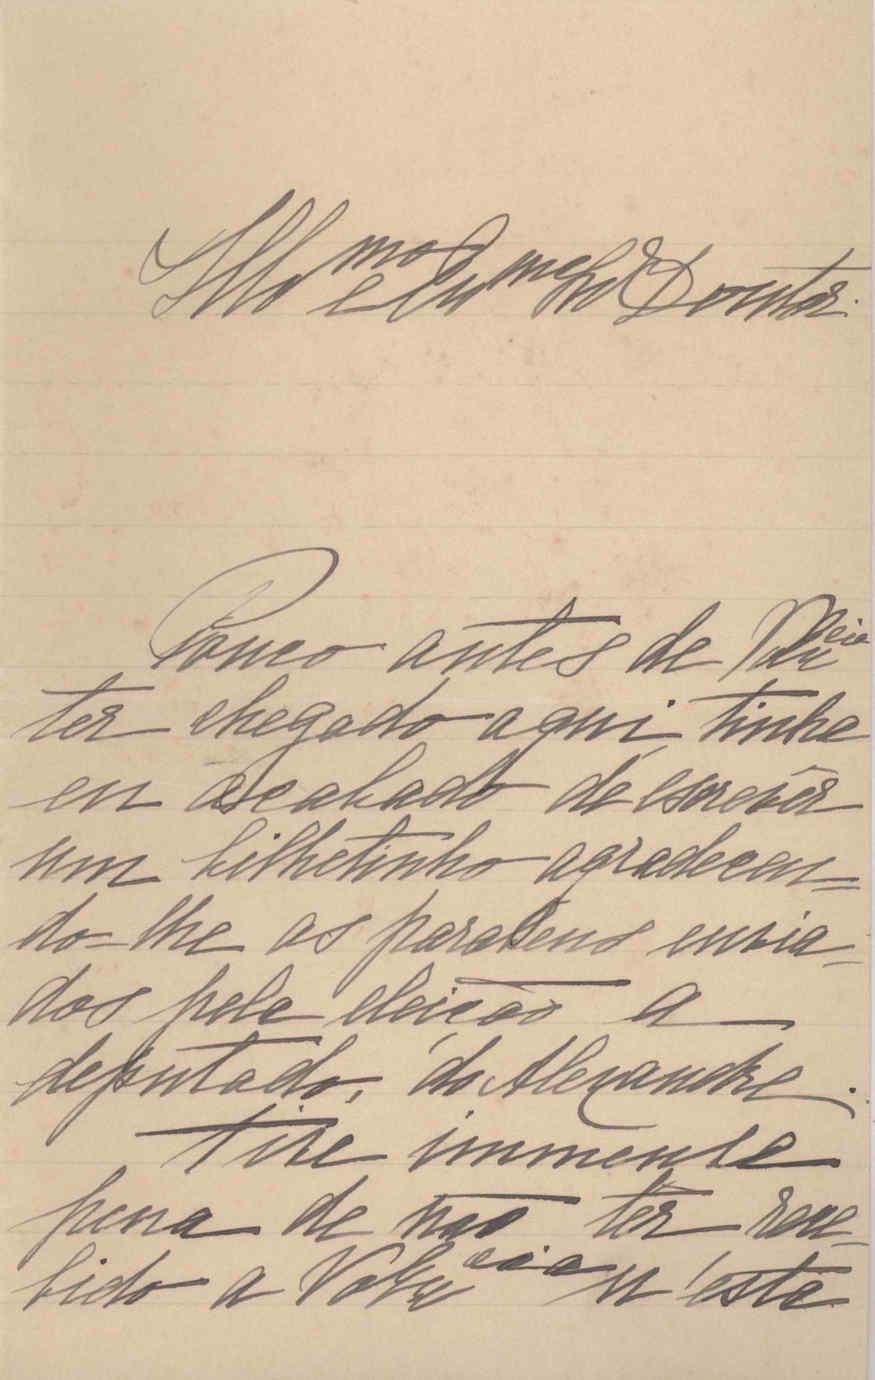 Illmo e Exmo Snr Doutor.
Pouco antes de V. Excia
ter chegado aqui, tinha
eu acabado de escrever
um bilhetinho agradecen=
do-lhe os parabens envia=
dos pela eleição a
deputado, do Alexandre.
Tive immensa
pena de não ter rece-
bido a V. Excia n'esta